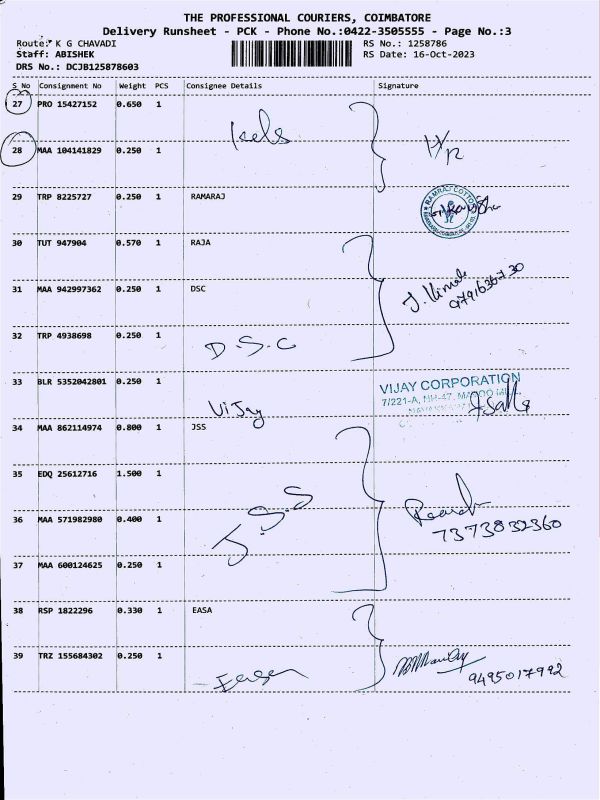 THE PROFESSIONAL COURIERS, COIMBATORE
Delivery Runsheet - PCK - Phone No.:0422-3505555 - Page No.:3
Route: K G CHAVADI RS No.: 1258786
Staff: ABISHEK RS Date: 16-Oct-2023
DRS No.: DCJB125878603
S No Consignment No Weight PCS Consignee Details Signature
27 PRO 15427152 0.650 1
28 MAA 104141829 0.250 1
29 TRP 8225727 0.250 1 RAMARAJ
RAMRAJ COTTON
30 TUT 947904 0.570 1 RAJA
31 MAA 942997362 0.250 1 DSC
32 TRP 4938698 0.250 1
D.S.C
33 BLR 5352042801 0.250 1
VIJAY CORPORATION
7/221-A, NH-47,
Vijay
34 MAA 862114974 0.800 1 JSS
35 EDQ 25612716 1.500 1
36 MAA 571982980 0.400 1
J.S.S
7373832360
37 MAA 600124625 0.250 1
38 RSP 1822296 0.330 1 EASA
39 TRZ 155684302 0.250 1
9495017992